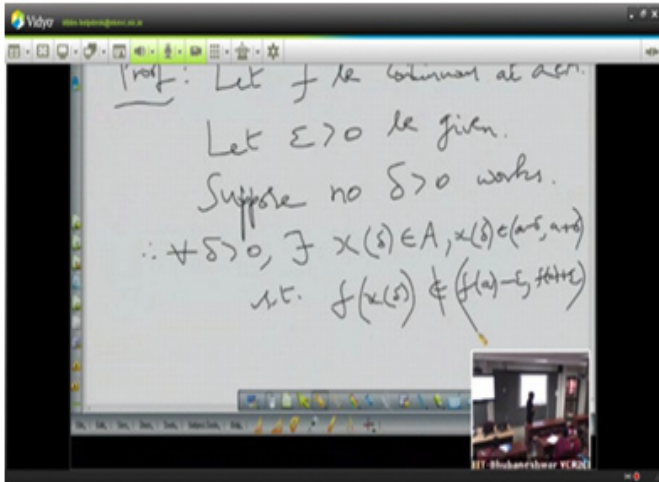 Vidyo
Proof: Let f be continuous at a∈A.
Let ε>0 be given.
Suppose no δ>0 works.
∴ ∀ δ>0, ∃ x(δ)∈A, x(δ)∈(a-δ, a+δ)
s.t. f(x(δ)) ∉ (f(a)-ε, f(a)+ε)
IIT-Bhubaneshwar